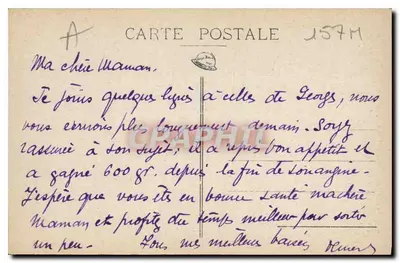 A
CARTE POSTALE
157M
Ma chère Maman.
Je joins quelques lignes à celles de Georges, nous
vous écrirons plus longuement demain - Soyez
rassurée à son sujet, il a repris bon appetit et
a gagné 600 gr. depuis la fin de son angine.
J'espère que vous êtes en bonne santé ma chère
Maman et profitez du temps meilleur pour sortir
un peu - Tous mes meilleurs baisers
CPARAMA